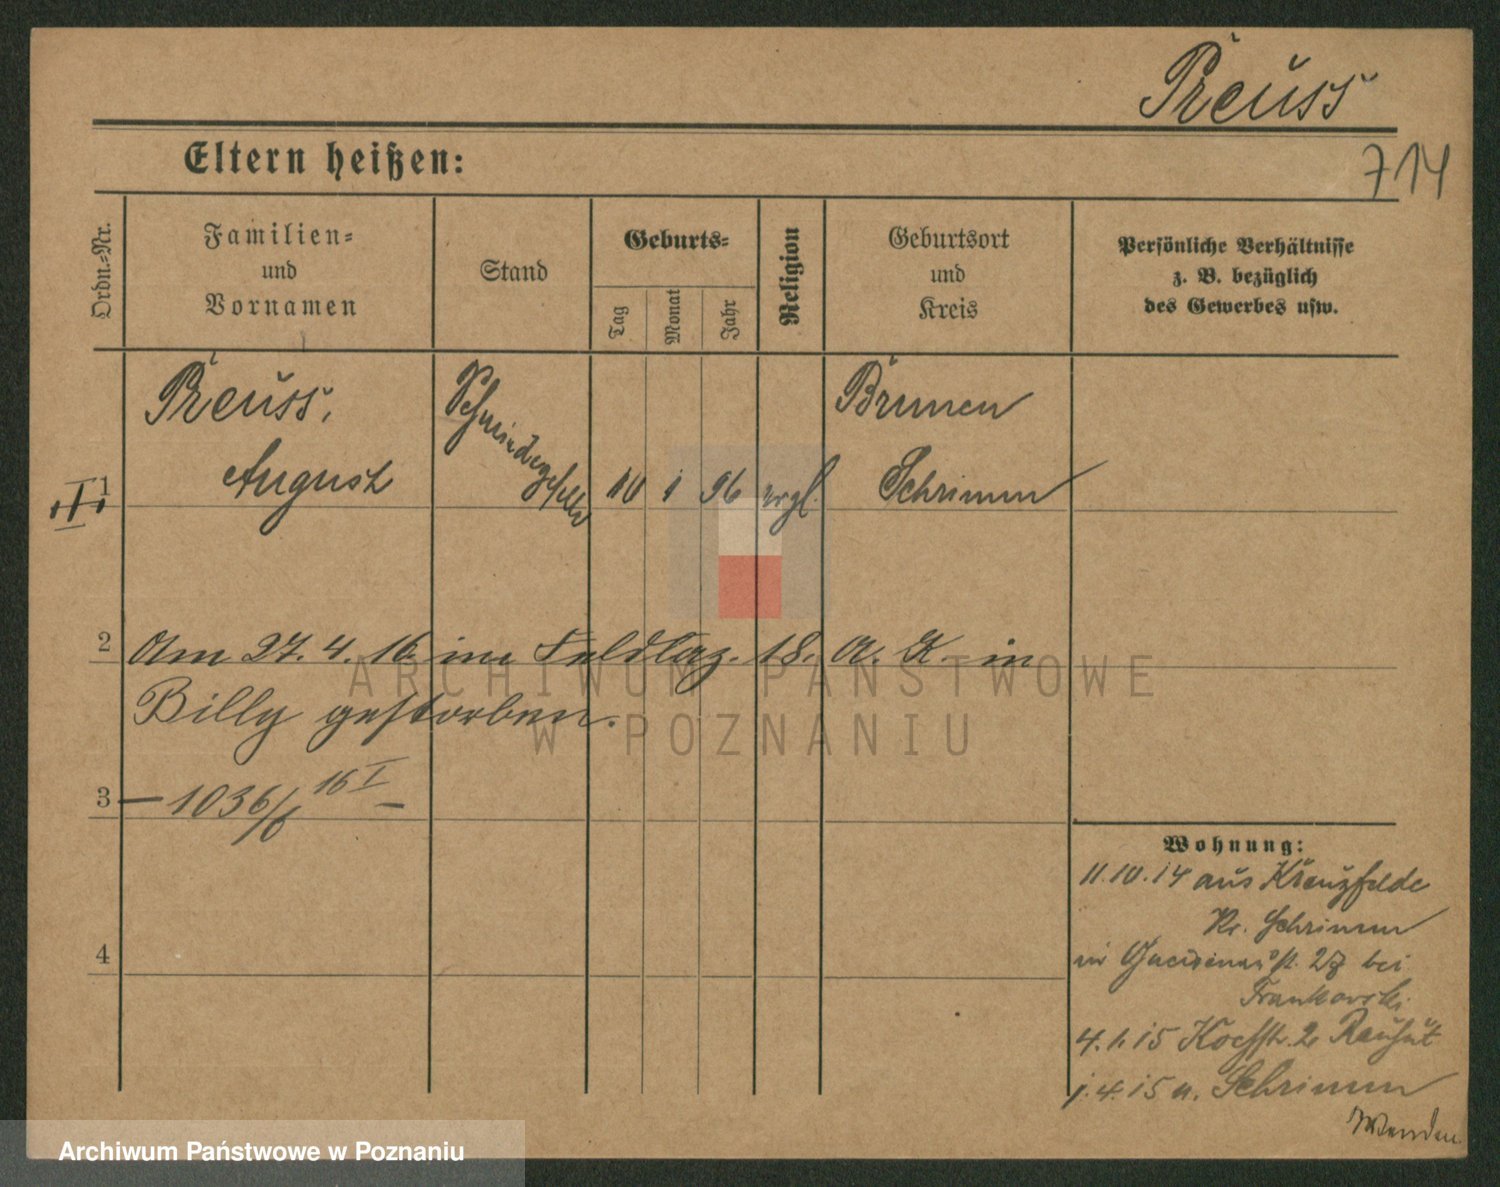 Preuss
714
Eltern heißen:
Ordn.-Nr.
Familien-
und
Vornamen
Stand
Geburts-
Tag
Monat
Jahr
Religion
Geburtsort
und
Kreis
Persönliche Verhältnisse
z. B. bezüglich
des Gewerbes usw.
Preuss,
August
Schmiedegeselle
10 1 96
evgl.
Brunen
Schrimm
1
2
Am 27. 4. 16. im Feldlaz. 18. A. K. in
Billy gestorben.
3
— 1036/6 16 I —
4
Wohnung:
11.10.14 aus Kreuzfelde
Kr. Schrimm
in 27 bei
Frankowski
4.1.15 Kochstr. 2 Rauhut
1.4.15 n. Schrimm
ARCHIWUM PAŃSTWOWE
W POZNANIU
Archiwum Państwowe w Poznaniu